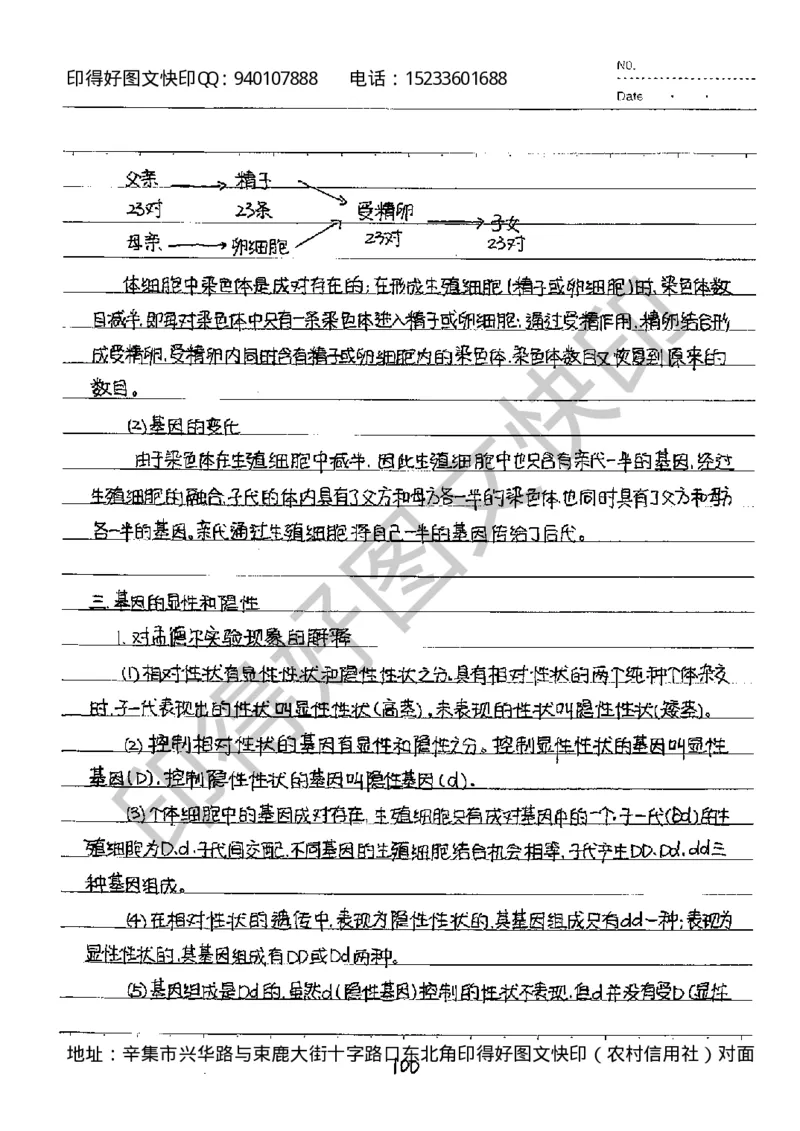 印得好图文快印QQ：940107888 电话：15233601688
NO.
Date
父亲 → 精子
23对 23条 受精卵 → 子女
母亲 → 卵细胞 23对 23对
体细胞中染色体是成对存在的；在形成生殖细胞(精子或卵细胞)时,染色体数
目减半,即每对染色体中只有一条染色体进入精子或卵细胞；通过受精作用,精卵结合形
成受精卵,受精卵内同时含有精子或卵细胞内的染色体,染色体数目又恢复到原来的
数目。
(2)基因的变化
由于染色体在生殖细胞中减半,因此生殖细胞中也只含有亲代一半的基因,经过
生殖细胞的融合,子代的体内具有了父方和母方各一半的染色体也同时具有了父方和母方
各一半的基因。亲代通过生殖细胞将自己一半的基因传给了后代。
三.基因的显性和隐性
1.对孟德尔实验现象的解释
(1)相对性状有显性性状和隐性性状之分,具有相对性状的两个纯种个体杂交
时,子一代表现出的性状叫显性性状(高茎),未表现的性状叫隐性性状(矮茎)。
(2)控制相对性状的基因有显性和隐性之分。控制显性性状的基因叫显性
基因(D).控制隐性性状的基因叫隐性基因(d).
(3)个体细胞中的基因成对存在,生殖细胞只有成对基因中的一个,子一代(Dd)的生
殖细胞为D.d.子代间交配,不同基因的生殖细胞结合机会相等,子代产生DD.Dd.dd三
种基因组成。
(4)在相对性状的遗传中,表现为隐性性状的,其基因组成只有dd一种;表现为
显性性状的,其基因组成有DD或Dd两种。
(5)基因组成是Dd的,虽然d(隐性基因)控制的性状不表现,但d并没有受D(显性
地址：辛集市兴华路与束鹿大街十字路口东北角印得好图文快印（农村信用社）对面
100
印得好图文快印